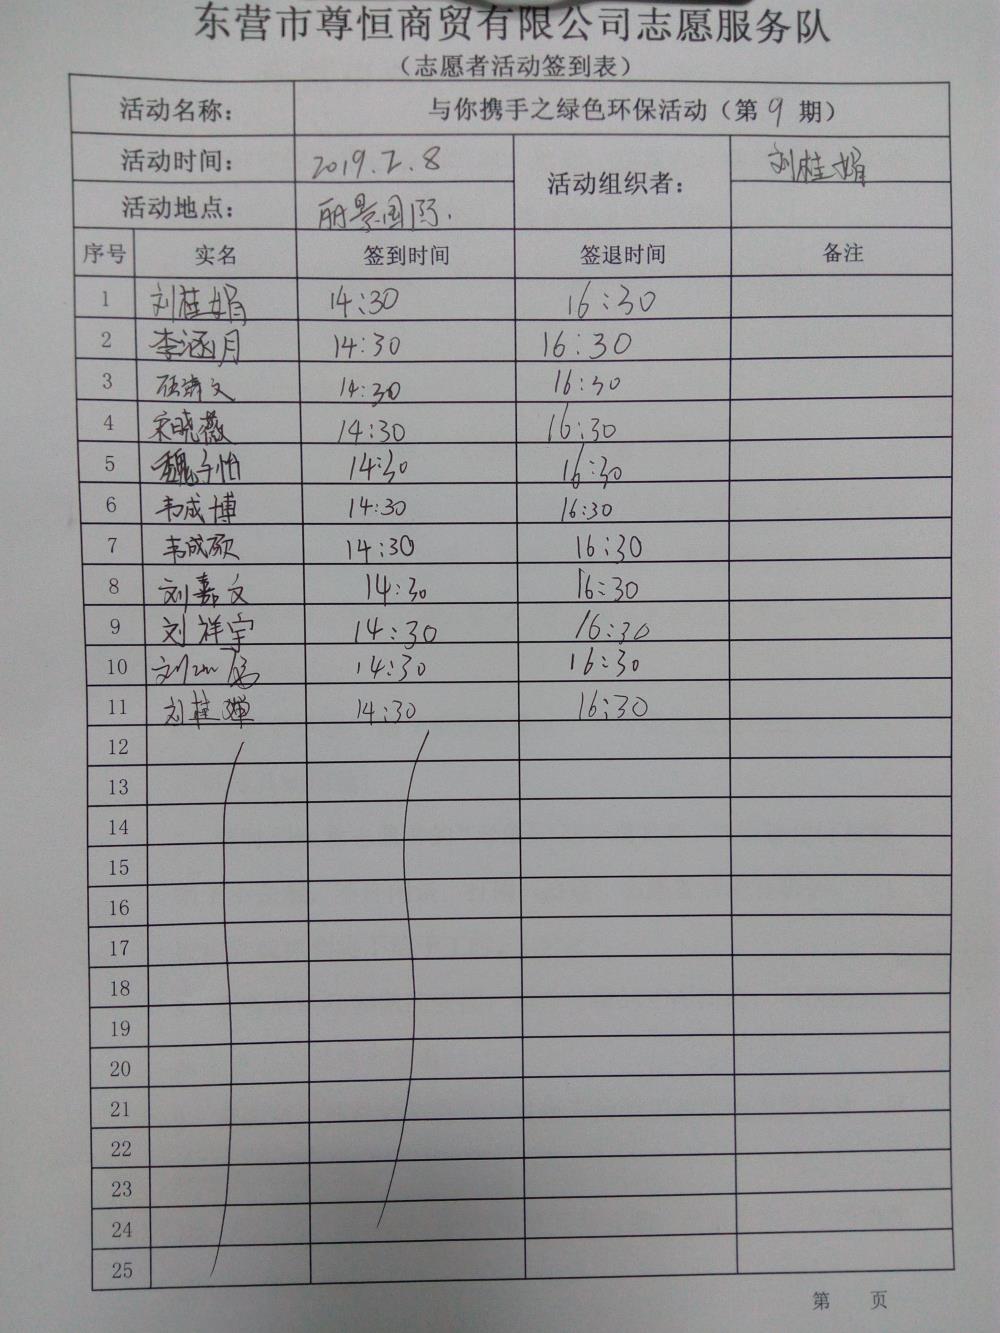 东营市尊恒商贸有限公司志愿服务队
（志愿者活动签到表）
活动名称： 与你携手之绿色环保活动（第 9 期）
活动时间： 2019.2.8 活动组织者： 刘桂娟
活动地点： 丽景国际.
序号 实名 签到时间 签退时间 备注
1 刘桂娟 14:30 16:30
2 李涵月 14:30 16:30
3 14:30 16:30
4 宋晓薇 14:30 16:30
5 魏子怡 14:30 16:30
6 韦成博 14:30 16:30
7 韦成硕 14:30 16:30
8 刘嘉文 14:30 16:30
9 刘祥宇 14:30 16:30
10 刘 14:30 16:30
11 刘桂 14:30 16:30
12
13
14
15
16
17
18
19
20
21
22
23
24
25
第 页